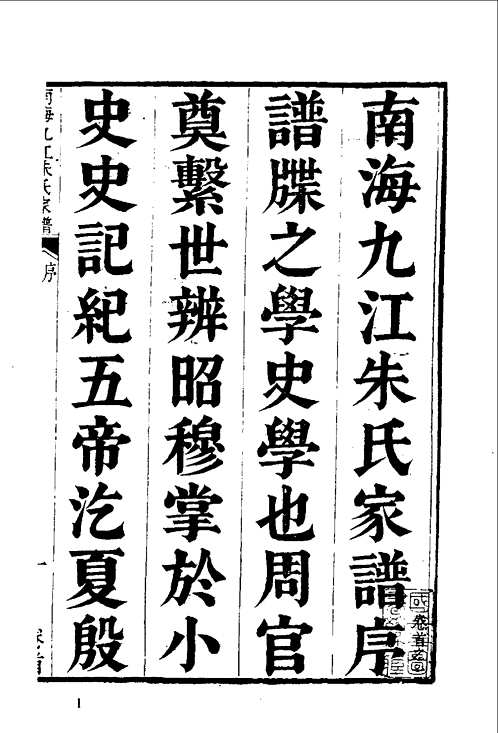 南海九江朱氏家譜序
譜牒之學史學也周官
奠繫世辨昭穆掌於小
史史記紀五帝汔夏殷
南海九江朱氏家譜
序
一
卷首
1